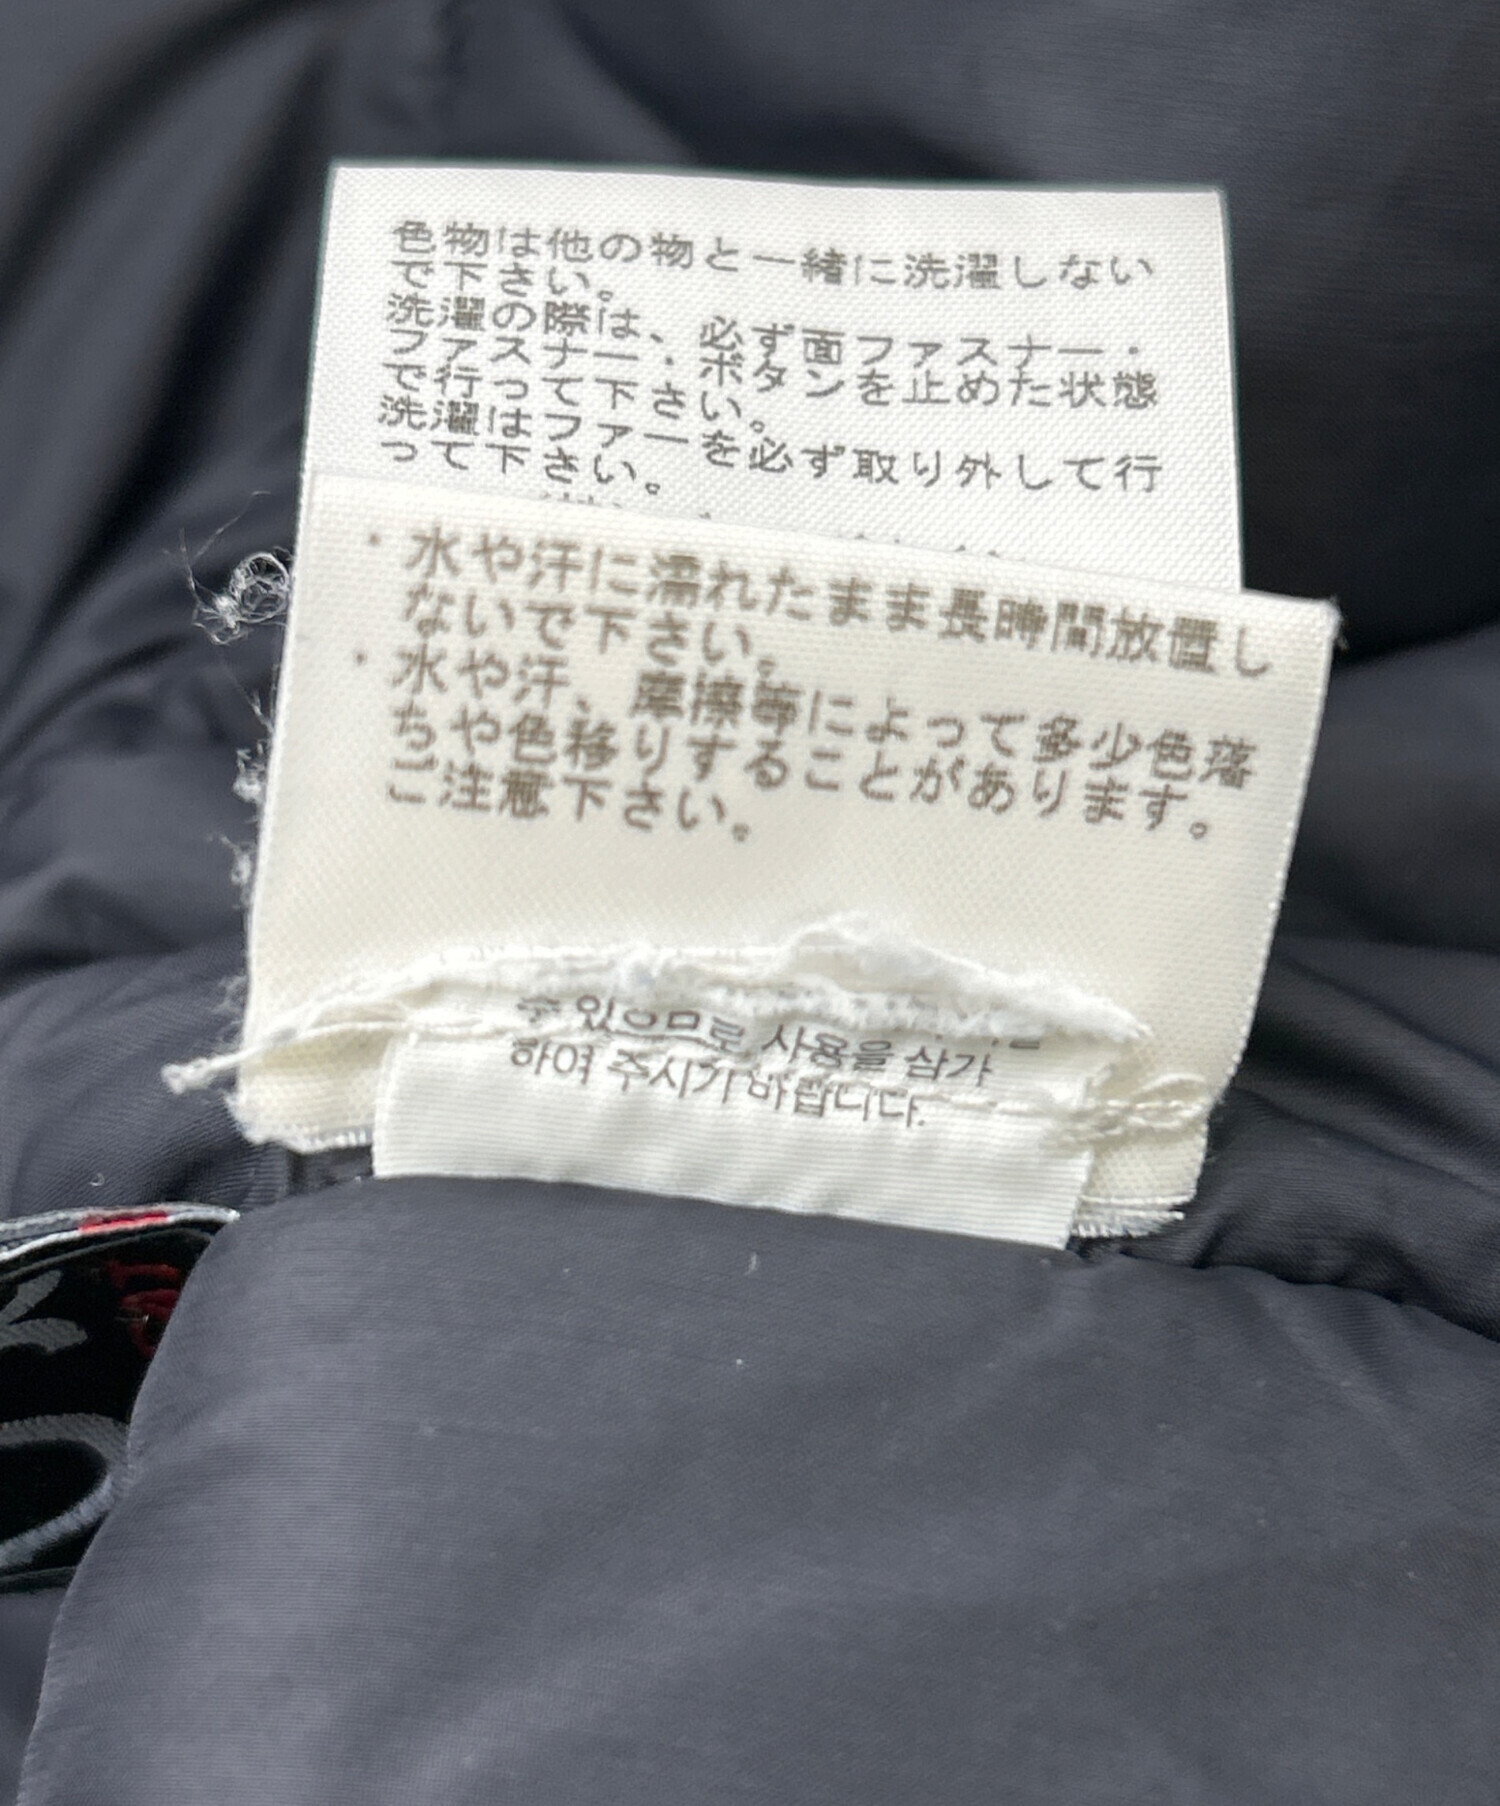 色物は他の物と一緒に洗濯しない
で下さい。
洗濯の際は、必ず面ファスナー・
ファスナー・ボタンを止めた状態
で行って下さい。
洗濯はファーを必ず取り外して行
って下さい。
・水や汗に濡れたまま長時間放置し
ないで下さい。
・水や汗、摩擦等によって多少色落
ちや色移りすることがあります。
ご注意下さい。
수 있으므로 사용을 삼가
하여 주시기 바랍니다.